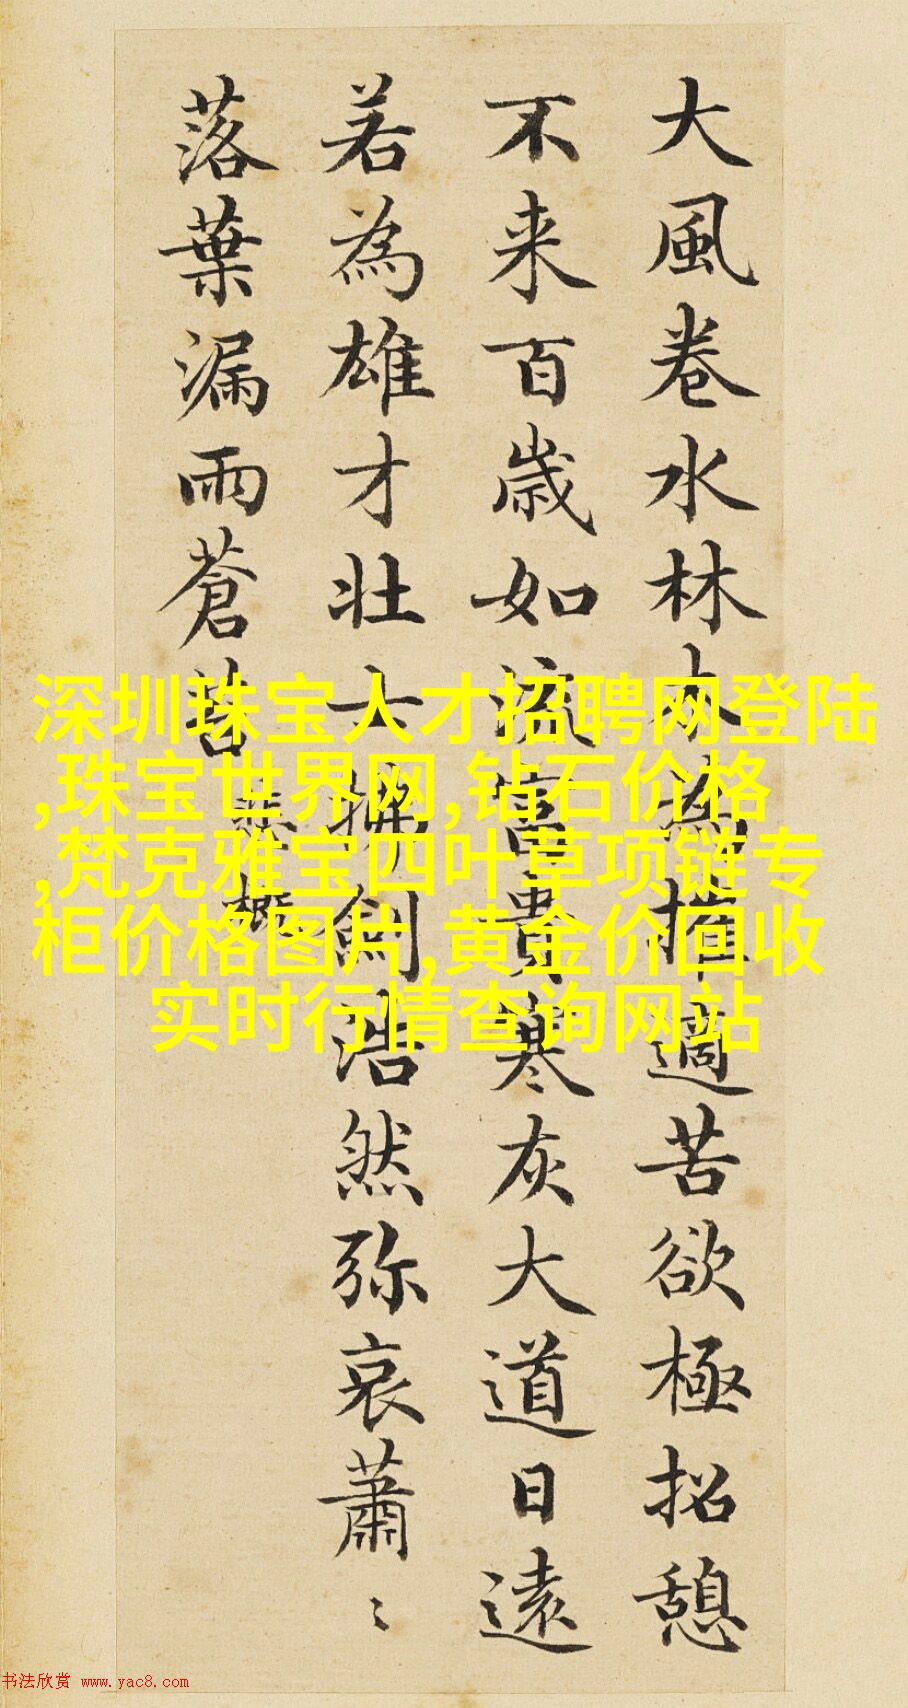 大風卷水林木為摧適苦欲極招憩
不来百歳如流富貴寒灰大道日遠
若為雄才壯士拂劍浩然弥哀蕭〻
落葉漏雨蒼苔
悲慨
深圳珠宝人才招聘网登陆
,珠宝世界网,钻石价格
,梵克雅宝四叶草项链专
柜价格图片,黄金价回收
实时行情查询网站
书法欣赏 www.yac8.com